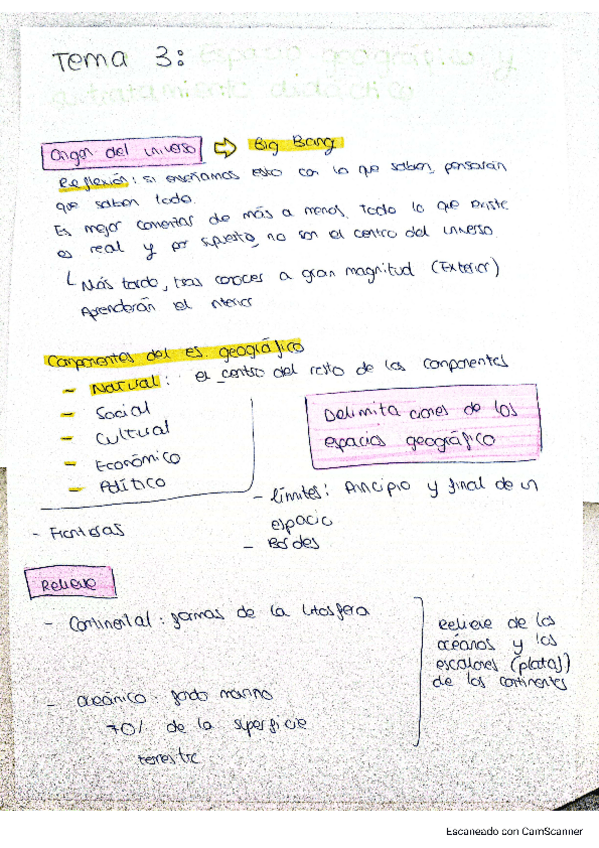 Tema 3: Espacio geográfico y
tratamiento didáctico
Origen del universo ⇨ Big Bang
Reflexión: si enseñamos esto con lo que saben, pensarán
que saben todo.
Es mejor comentar de más a menos, Todo lo que existe
es real y por supuesto, no son el centro del universo.
Más tarde, tras conocer a gran magnitud (Exterior)
Aprenderán el interior
Componentes del es. geográfico
- Natural: el centro del resto de los componentes
- Social
- Cultural
- Económico
- Político
Delimitaciones de los
espacios geográfico
- límites: Principio y final de un
espacio
- Fronteras
- Bordes
Relieve
- Continental: formas de la litosfera
- oceánico: fondo marino
70% de la superficie
terrestre
Relieve de los
océanos y los
escalones (plataf)
de los continentes
Escaneado con CamScanner